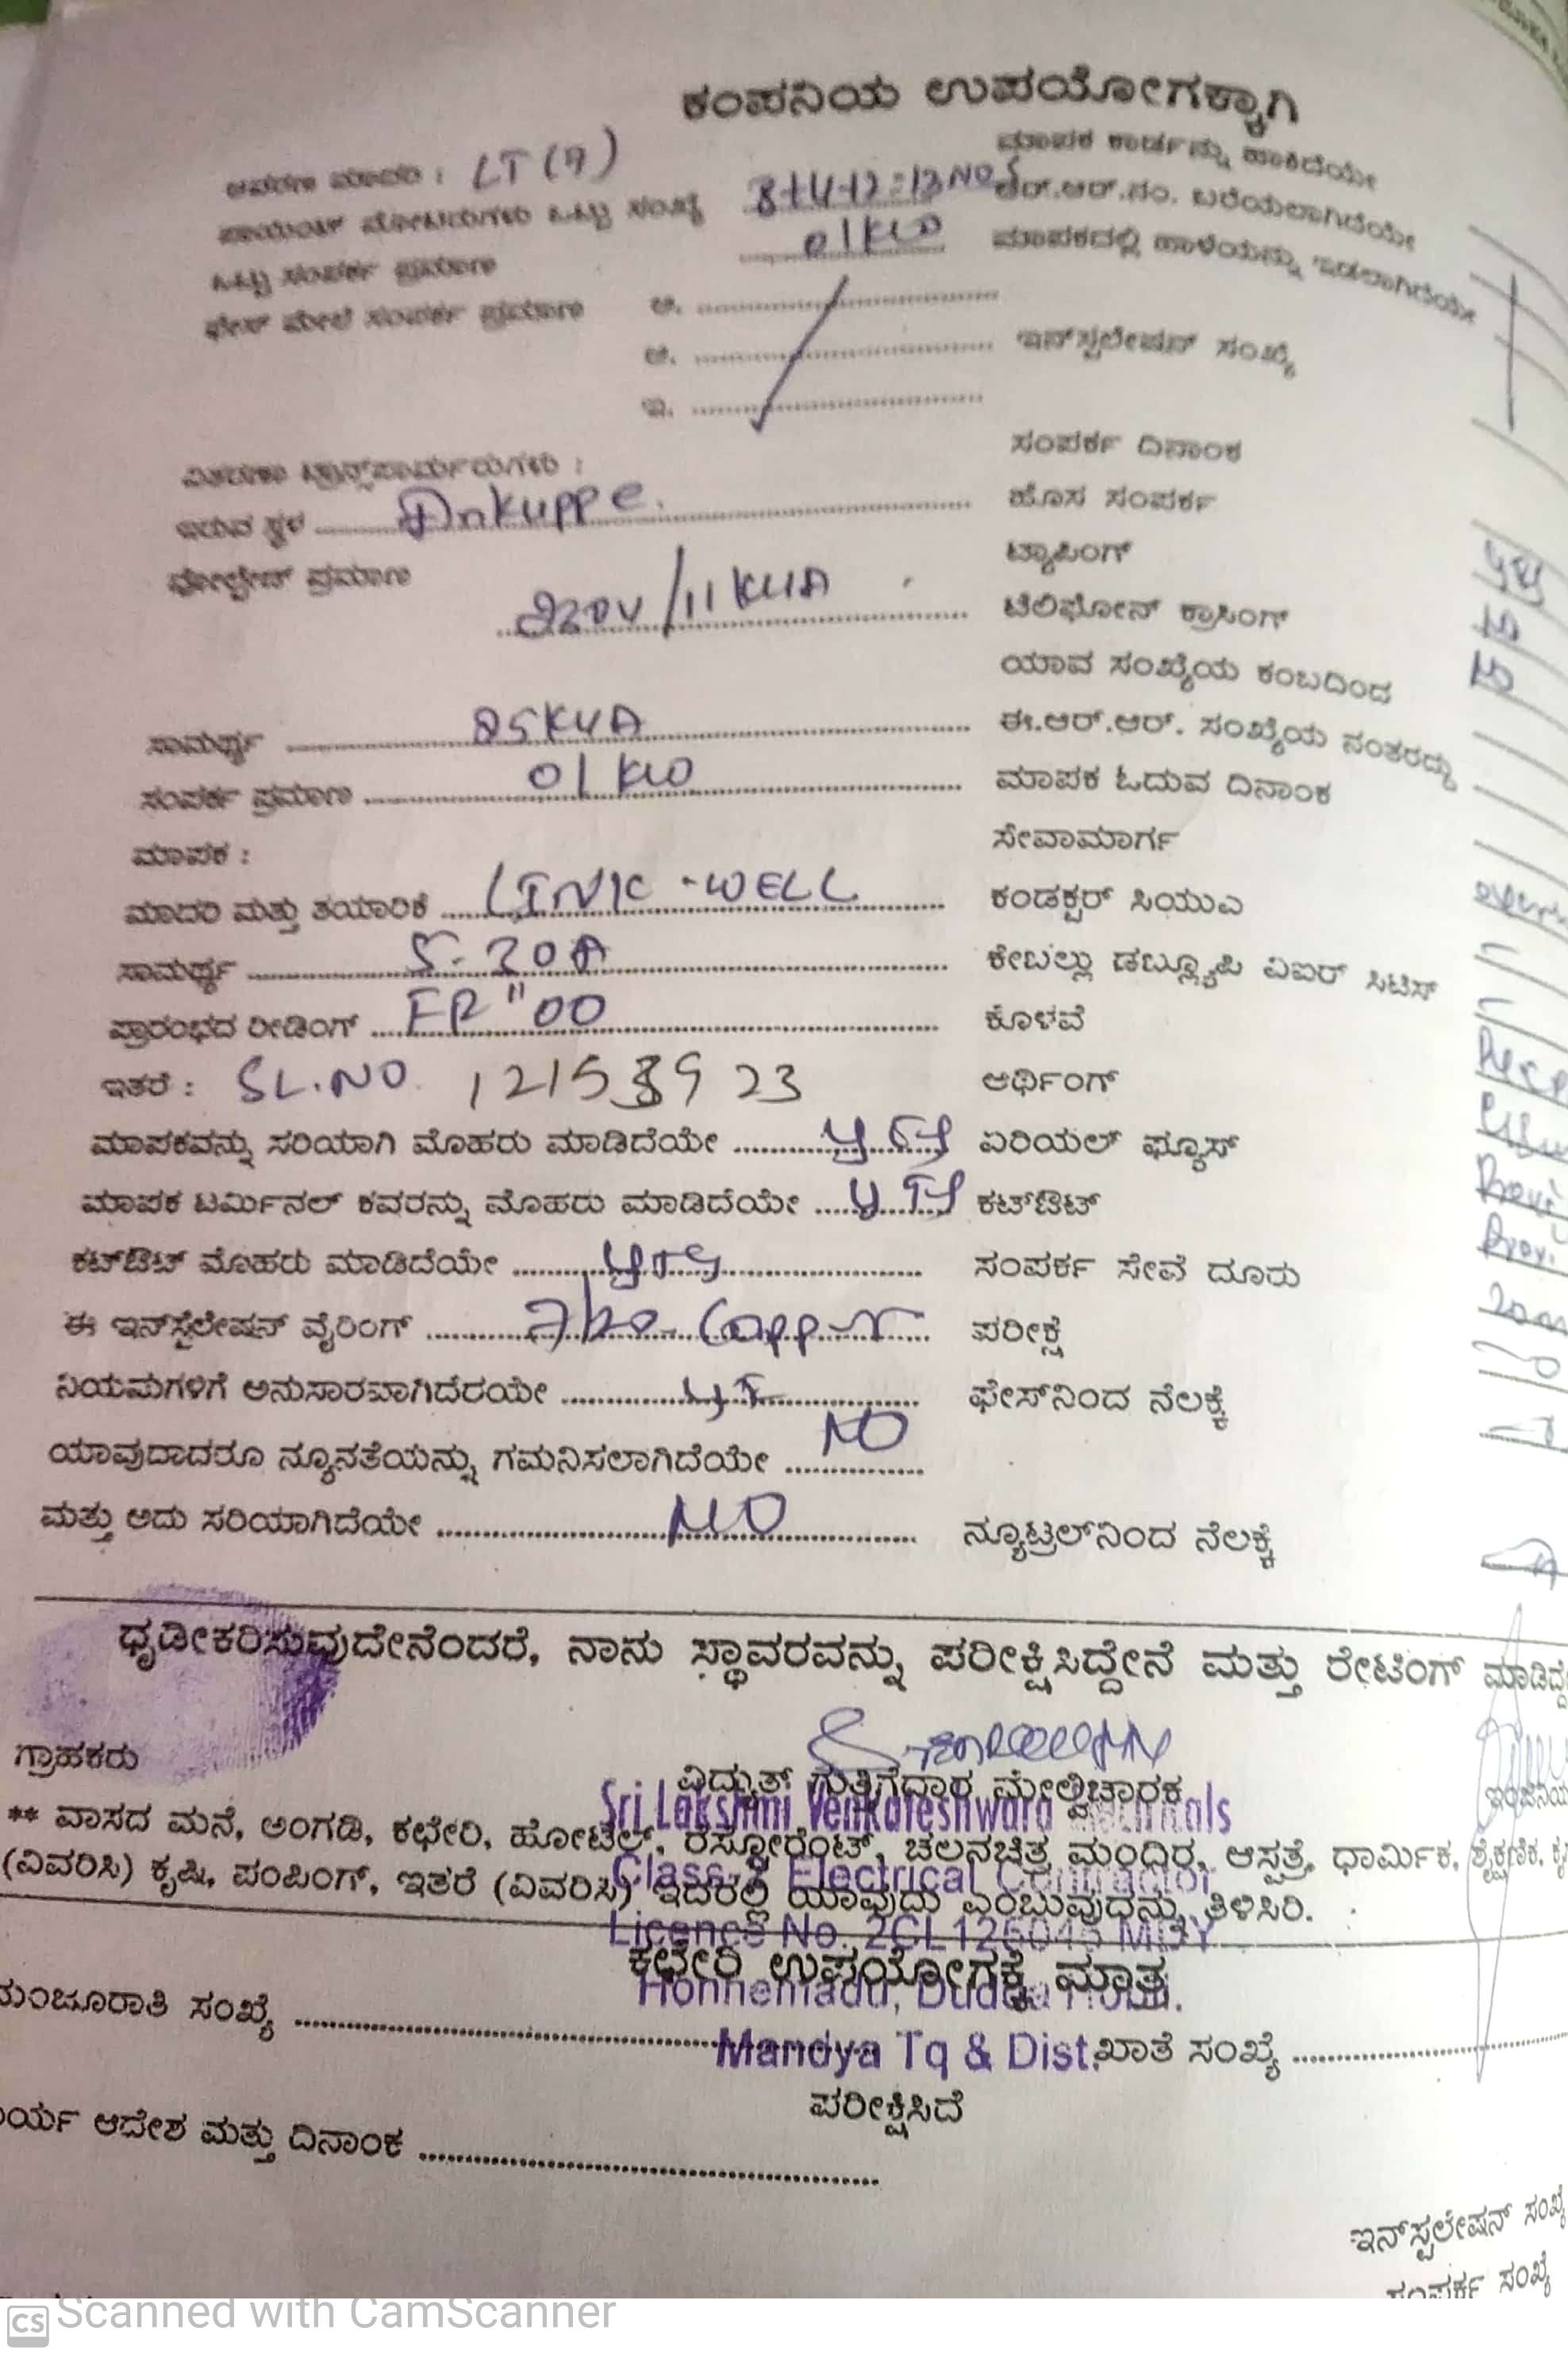 ಕಂಪನಿಯ ಉಪಯೋಗಕ್ಕಾಗಿ
ಮಾದರಿ : LT (7)
ಮಾಪಕ ಕಾರ್ಡನ್ನು ಹಾಕಿದೆಯೇ
ಒಟ್ಟು ಸಂಖ್ಯೆ 8+4+12=13 NOS
ಆರ್.ಆರ್.ನಂ. ಬರೆಯಲಾಗಿದೆಯೇ
ಒಟ್ಟು ಸಂಪರ್ಕ ಪ್ರಮಾಣ 01KW
ಮಾಪಕದಲ್ಲಿ ಹಾಳೆಯನ್ನು ಇಡಲಾಗಿದೆಯೇ
ಫೇಸ್ ಮೇಲೆ ಸಂಪರ್ಕ ಪ್ರಮಾಣ ಅ. ....................
ಆ. .................... ಇನ್‌ಸ್ಟಲೇಷನ್ ಸಂಖ್ಯೆ
ಇ. ....................
ಸಂಪರ್ಕ ದಿನಾಂಕ
ವಿತರಣಾ ಟ್ರಾನ್ಸ್‌ಫಾರ್ಮರುಗಳು :
ಇರುವ ಸ್ಥಳ Ankuppe.
ಹೊಸ ಸಂಪರ್ಕ
ವೋಲ್ಟೇಜ್ ಪ್ರಮಾಣ
ಟ್ಯಾಪಿಂಗ್
220V/11KVA
ಟೆಲಿಫೋನ್ ಕ್ರಾಸಿಂಗ್
ಯಾವ ಸಂಖ್ಯೆಯ ಕಂಬದಿಂದ
ಸಾಮರ್ಥ್ಯ 25KVA
ಈ.ಆರ್.ಆರ್. ಸಂಖ್ಯೆಯ ನಂತರದ್ದು
ಸಂಪರ್ಕ ಪ್ರಮಾಣ 01 KW
ಮಾಪಕ ಓದುವ ದಿನಾಂಕ
ಮಾಪಕ :
ಸೇವಾಮಾರ್ಗ
ಮಾದರಿ ಮತ್ತು ತಯಾರಿಕೆ LINK-WELL
ಕಂಡಕ್ಟರ್ ಸಿಯುಎ
ಸಾಮರ್ಥ್ಯ 5-30A
ಕೇಬಲ್ಲು ಡಬ್ಲ್ಯೂಪಿ ವಿಐರ್ ಸಿಟಿಸ್
ಪ್ರಾರಂಭದ ರೀಡಿಂಗ್ FR "00
ಕೊಳವೆ
ಇತರೆ : SL.NO. 12153923
ಆರ್ಥಿಂಗ್
ಮಾಪಕವನ್ನು ಸರಿಯಾಗಿ ಮೊಹರು ಮಾಡಿದೆಯೇ yes
ಏರಿಯಲ್ ಫ್ಯೂಸ್
ಮಾಪಕ ಟರ್ಮಿನಲ್ ಕವರನ್ನು ಮೊಹರು ಮಾಡಿದೆಯೇ yes
ಕಟ್‌ಔಟ್
ಕಟ್‌ಔಟ್ ಮೊಹರು ಮಾಡಿದೆಯೇ yes
ಸಂಪರ್ಕ ಸೇವೆ ದೂರು
ಈ ಇನ್‌ಸ್ಟಲೇಷನ್ ವೈರಿಂಗ್ 7/20 Copper
ಪರೀಕ್ಷೆ
ನಿಯಮಗಳಿಗೆ ಅನುಸಾರವಾಗಿದೆರಯೇ
ಫೇಸ್‌ನಿಂದ ನೆಲಕ್ಕೆ
ಯಾವುದಾದರೂ ನ್ಯೂನತೆಯನ್ನು ಗಮನಿಸಲಾಗಿದೆಯೇ NO
ಮತ್ತು ಅದು ಸರಿಯಾಗಿದೆಯೇ NO
ನ್ಯೂಟ್ರಲ್‌ನಿಂದ ನೆಲಕ್ಕೆ
ಧೃಡೀಕರಿಸುವುದೇನೆಂದರೆ, ನಾನು ಸ್ಥಾವರವನ್ನು ಪರೀಕ್ಷಿಸಿದ್ದೇನೆ ಮತ್ತು ರೇಟಿಂಗ್
ಗ್ರಾಹಕರು
ವಿದ್ಯುತ್ ಗುತ್ತಿಗೆದಾರ ಮೇಲ್ವಿಚಾರಕ
Sri Lakshmi Venkateshwara Electricals
** ವಾಸದ ಮನೆ, ಅಂಗಡಿ, ಕಛೇರಿ, ಹೋಟೆಲ್, ರೆಸ್ಟೋರೆಂಟ್, ಚಲನಚಿತ್ರ ಮಂದಿರ, ಆಸ್ಪತ್ರೆ, ಧಾರ್ಮಿಕ, ಶೈಕ್ಷಣಿಕ,
Electrical Contractor
(ವಿವರಿಸಿ) ಕೃಷಿ, ಪಂಪಿಂಗ್, ಇತರೆ (ವಿವರಿಸಿ) ಇದರಲ್ಲಿ ಯಾವುದು ಎಂಬುವುದನ್ನು ತಿಳಿಸಿರಿ.
Licence No. 2CL126045 MDY
ಕಛೇರಿ ಉಪಯೋಗಕ್ಕೆ ಮಾತ್ರ
Honnemadu, Dudda Hobli.
ಮಂಜೂರಾತಿ ಸಂಖ್ಯೆ ....................
Mandya Tq & Dist.
ಖಾತೆ ಸಂಖ್ಯೆ ....................
ಪರೀಕ್ಷಿಸಿದೆ
ಆದೇಶ ಮತ್ತು ದಿನಾಂಕ ....................
ಇನ್‌ಸ್ಟಲೇಷನ್ ಸಂಖ್ಯೆ
ಸಂಪರ್ಕ ಸಂಖ್ಯೆ
CS Scanned with CamScanner